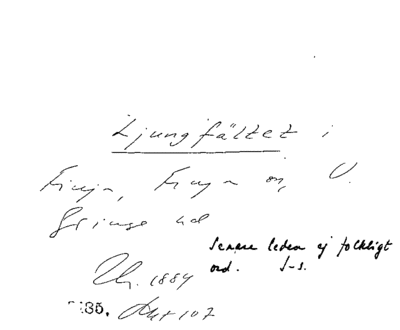 Ljungfältet i
Finja, Finja sn, V.
Göinge hd
Senare leden ej folkligt
ord. S-s.
1884
35. 107